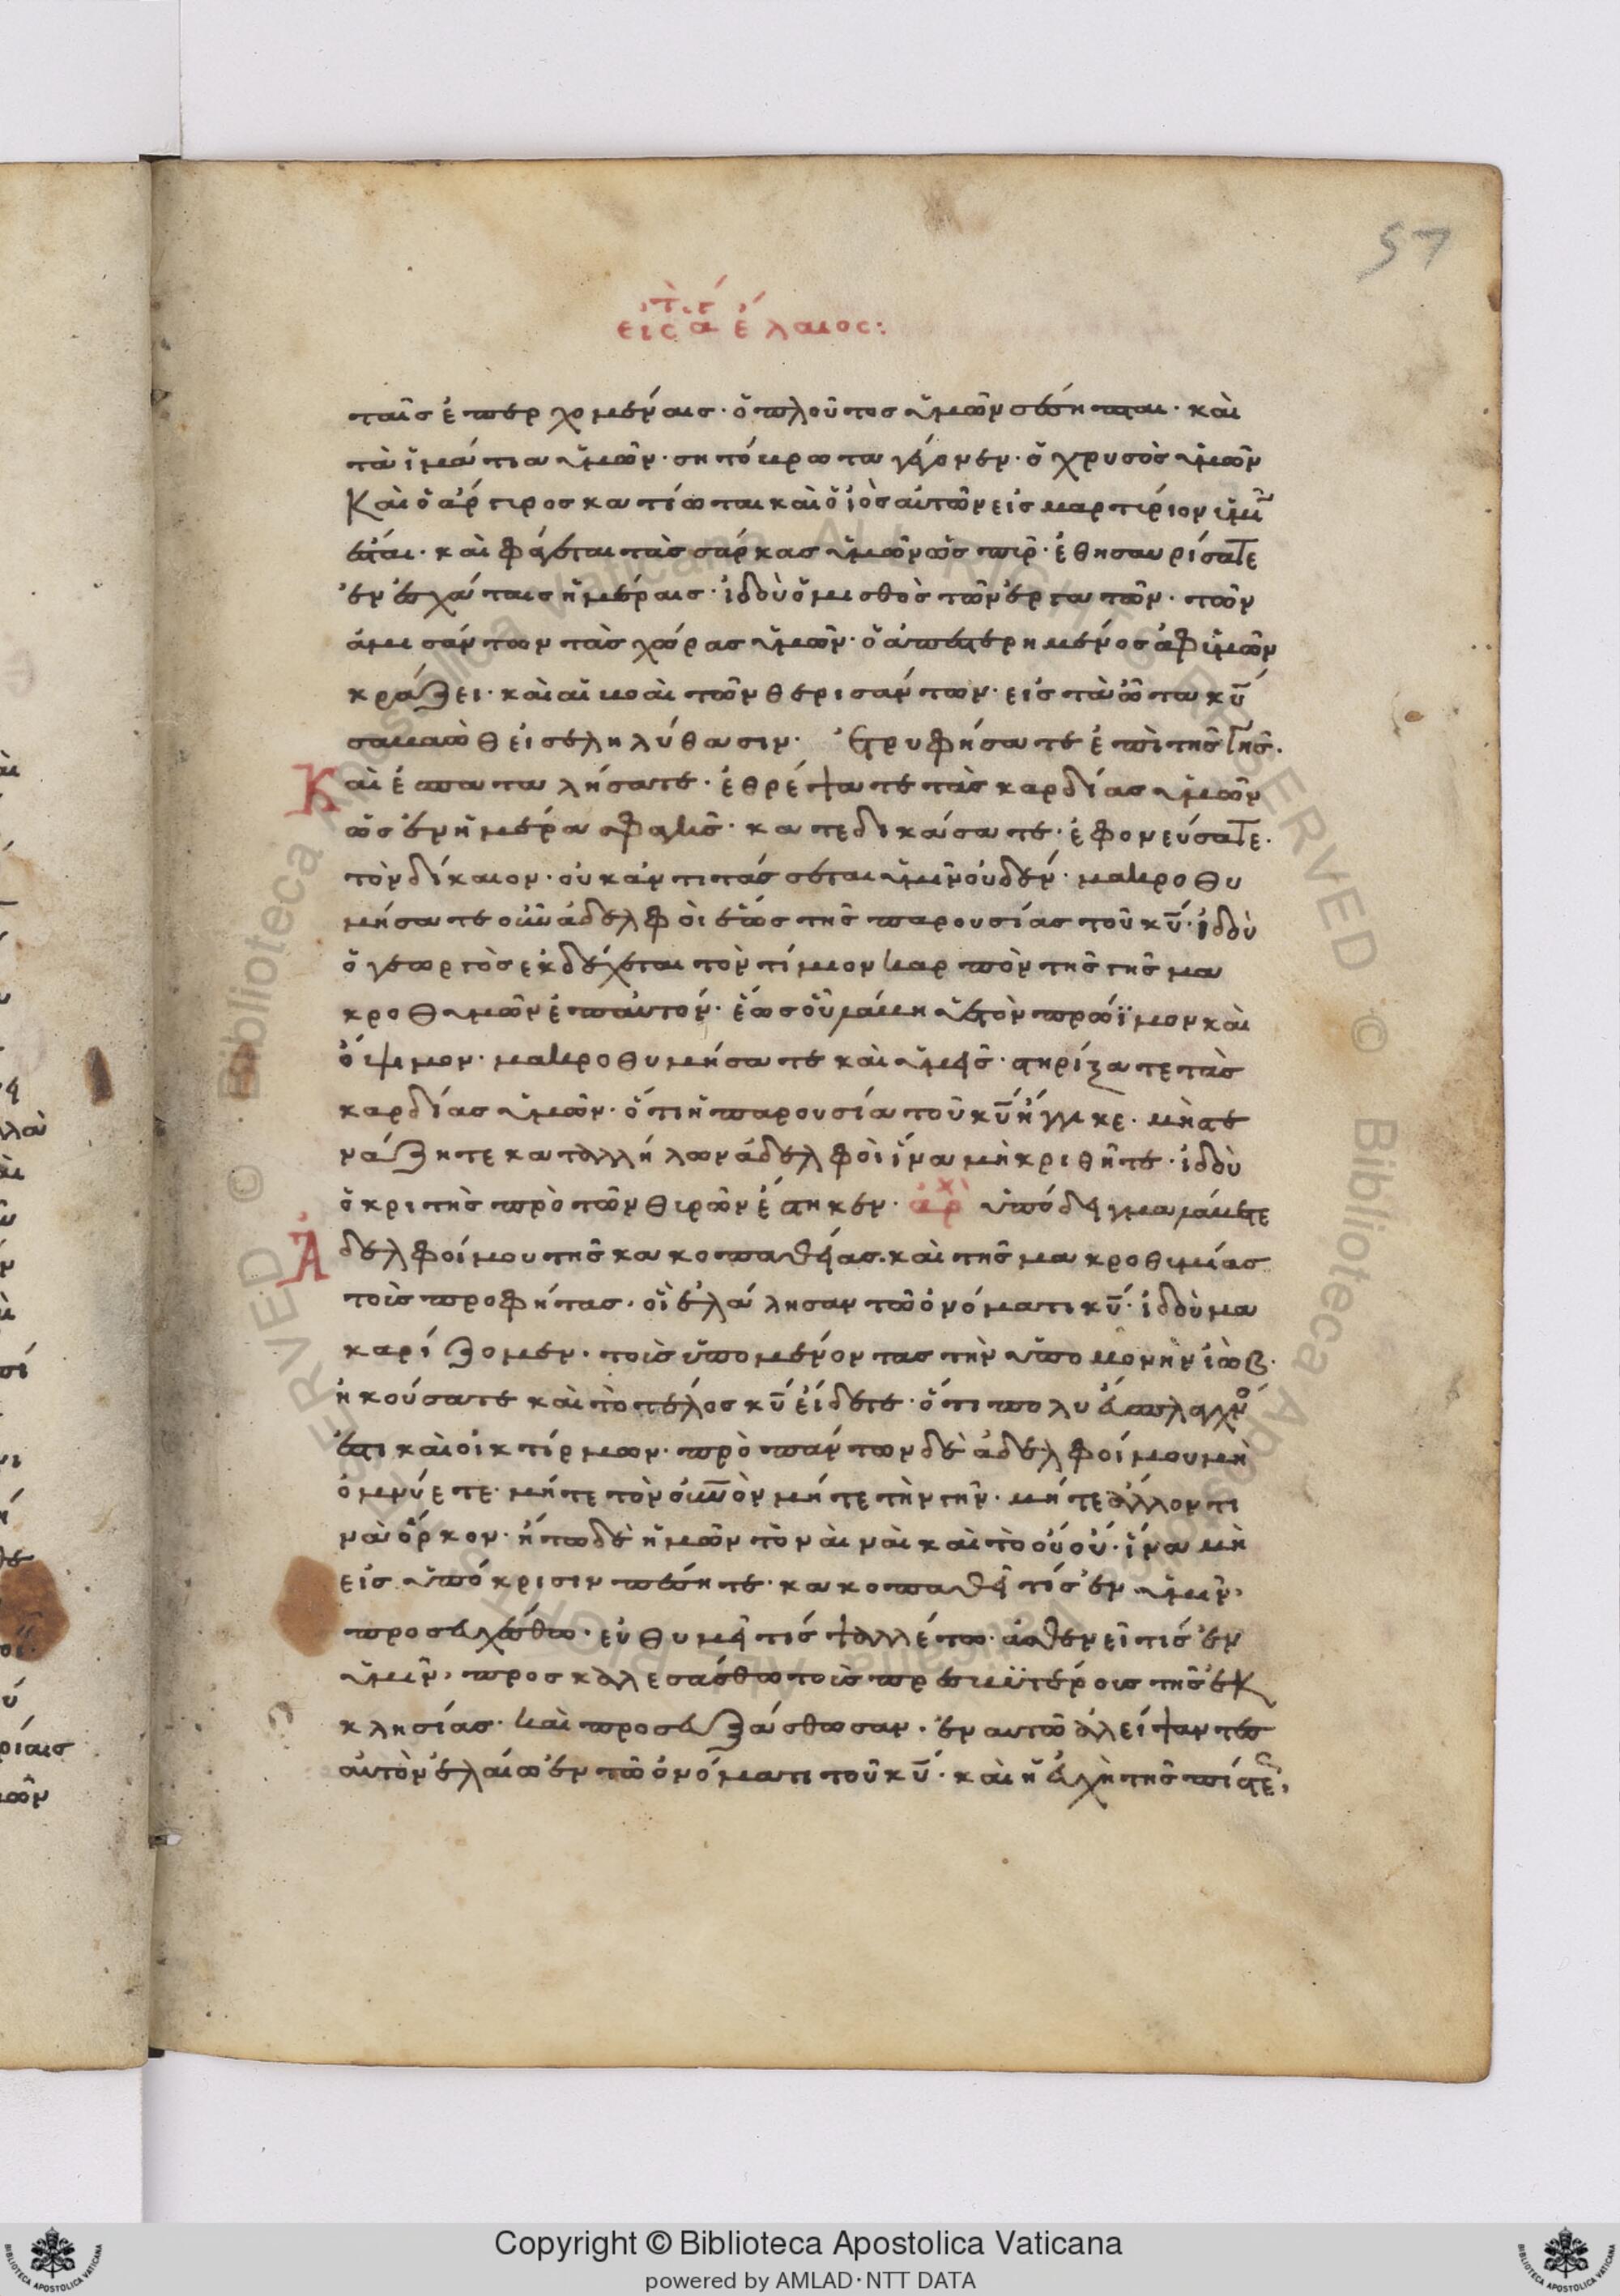 57
εἰς τὸ ἅγιον ἔλαιος:
ταῖς ἐπερχομέναις· ὁ πλοῦτος ὑμῶν σέσηπται· καὶ
τὰ ἱμάτια ὑμῶν· σητόβρωτα γέγονεν· ὁ χρυσὸς ὑμῶν
Καὶ ὁ ἄργυρος κατίωται καὶ ὁ ἰὸς αὐτῶν εἰς μαρτύριον ὑμῖ
ἔσται· καὶ φάγεται τὰς σάρκας ὑμῶν ὡς πῦρ· ἐθησαυρίσατε
ἐν ἐσχάταις ἡμέραις· ἰδοὺ ὁ μισθὸς τῶν ἐργατῶν· τῶν
ἀμησάντων τὰς χώρας ὑμῶν· ὁ ἀπεστερημένος ἀφ ὑμῶν
κράζει· καὶ αἱ βοαὶ τῶν θερισάντων· εἰς τὰ ὦτα κυ
σαβαὼθ εἰσεληλύθασιν· Ἐτρυφήσατε ἐπὶ τῆς γῆς.
Καὶ ἐσπαταλήσατε· ἐθρέψατε τὰς καρδίας ὑμῶν
ὡς ἐν ἡμέρα σφαγῆς· κατεδικάσατε· ἐφονεύσατε.
τὸν δίκαιον· οὐκ ἀντιτάσσεται ὑμῖν οὐδέν· μακροθυ
μήσατε οὖν ἀδελφοὶ ἕως τῆς παρουσίας τοῦ κυ· ἰδοὺ
ὁ γεωργὸς ἐκδέχεται τὸν τίμιον καρπὸν τῆς γῆς μα
κροθυμῶν ἐπ αὐτόν· ἕως οὗ λάβη ὑετὸν πρώϊμον καὶ
ὄψιμον· μακροθυμήσατε καὶ ὑμεῖς· στηρίξατε τὰς
καρδίας ὑμῶν· ὅτι ἡ παρουσία τοῦ κυ ἤγγικε· μὴ στε
νάζητε κατ ἀλλήλων ἀδελφοὶ ἵνα μὴ κριθῆτε· ἰδοὺ
ὁ κριτὴς πρὸ τῶν θυρῶν ἕστηκεν· ἀρχ ὑπόδειγμα λάβετε
Ἀδελφοί μου τῆς κακοπαθείας· καὶ τῆς μακροθυμίας
τοὺς προφήτας· οἳ ἐλάλησαν τῶ ὀνόματι κυ· ἰδοὺ μα
καρίζομεν· τοὺς ὑπομένοντας τὴν ὑπομονὴν ἰὼβ·
ἠκούσατε καὶ τὸ τέλος κυ εἴδετε· ὅτι πολυεύσπλαγχνο
ἐστι καὶ οἰκτίρμων· πρὸ πάντων δὲ ἀδελφοί μου μὴ
ὀμνύετε· μήτε τὸν οὐνὸν μήτε τὴν γῆν· μήτε ἄλλον τι
νὰ ὅρκον· ἤτω δὲ ἡμῶν τὸ ναὶ ναὶ καὶ τὸ οὐ οὐ· ἵνα μὴ
εἰς ὑπόκρισιν πέσητε· κακοπαθεῖ τίς ἐν ὑμῖν,
προσευχέσθω· εὐθυμεῖ τίς ψαλλέτω· ἀσθενεῖ τίς ἐν
ὑμῖν, προσκαλεσάσθω τοὺς πρεσβυτέρους τῆς ἐκ
κλησίας· καὶ προσευξάσθωσαν· ἐν αυτῶ ἀλείψαντες
αὐτὸν ἐλαίω ἐν τῶ ὀνόματι τοῦ κυ· καὶ ἡ εὐχὴ τῆς πίστε,
Copyright © Biblioteca Apostolica Vaticana
powered by AMLAD·NTT DATA